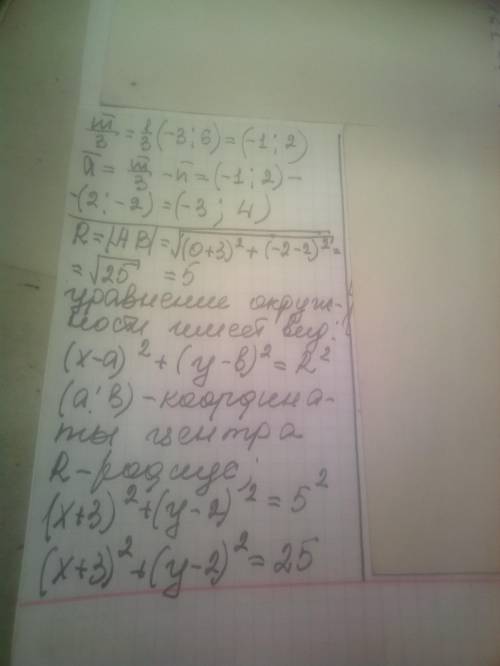 m̅/3 = 1/3 (-3; 6) = (-1; 2)
a̅ = m̅/3 - n̅ = (-1; 2) -
-(2; -2) = (-3; 4)
R = |AB| = √((0+3)² + (-2-2)²) =
= √25 = 5
уравнение окруж-
ности имеет вид:
(x-a)² + (y-b)² = R²
(a; b) - координа-
ты центра
R - радиус;
(x+3)² + (y-2)² = 5²
(x+3)² + (y-2)² = 25